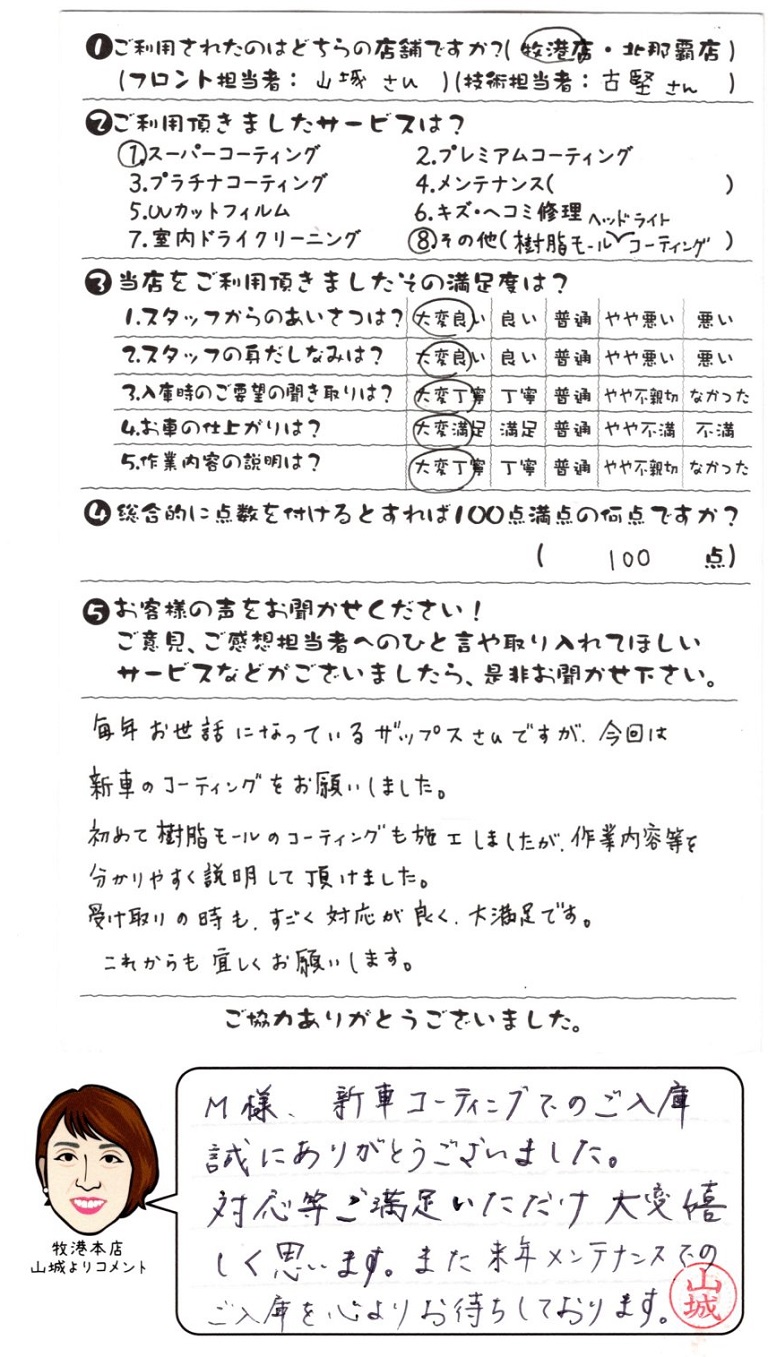 ❶ご利用されたのはどちらの店舗ですか?(牧港店・北那覇店)
(フロント担当者：山城さん)(技術担当者：古堅さん)
❷ご利用頂きましたサービスは?
1.スーパーコーティング 2.プレミアムコーティング
3.プラチナコーティング 4.メンテナンス( )
5.UVカットフィルム 6.キズ・ヘコミ修理
7.室内ドライクリーニング 8.その他(樹脂モール ヘッドライトコーティング)
❸当店をご利用頂きましたその満足度は?
1.スタッフからのあいさつは? 大変良い 良い 普通 やや悪い 悪い
2.スタッフの身だしなみは? 大変良い 良い 普通 やや悪い 悪い
3.入庫時のご要望の聞き取りは? 大変丁寧 丁寧 普通 やや不親切 なかった
4.お車の仕上がりは? 大変満足 満足 普通 やや不満 不満
5.作業内容の説明は? 大変丁寧 丁寧 普通 やや不親切 なかった
❹総合的に点数を付けるとすれば100点満点の何点ですか?
( 100 点)
❺お客様の声をお聞かせください!
ご意見、ご感想担当者へのひと言や取り入れてほしい
サービスなどがございましたら、是非お聞かせ下さい。
毎年お世話になっているザップスさんですが、今回は
新車のコーティングをお願いしました。
初めて樹脂モールのコーティングも施工しましたが、作業内容等を
分かりやすく説明して頂けました。
受け取りの時も、すごく対応が良く、大満足です。
これからも宜しくお願いします。
ご協力ありがとうございました。
M様、新車コーティングでのご入庫
誠にありがとうございました。
対応等ご満足いただけ大変嬉
しく思います。また来年メンテナンスでの
ご入庫を心よりお待ちしております。
山城
牧港本店
山城よりコメント